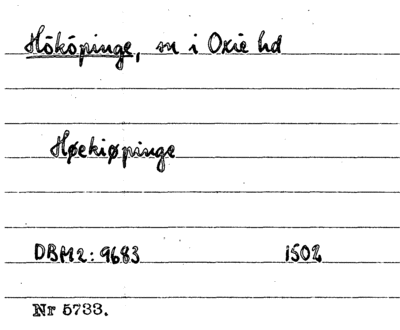 Hököpinge, sn i Oxie hd
Høekiøpinge
DBM2: 9683 1502
Nr 5733.